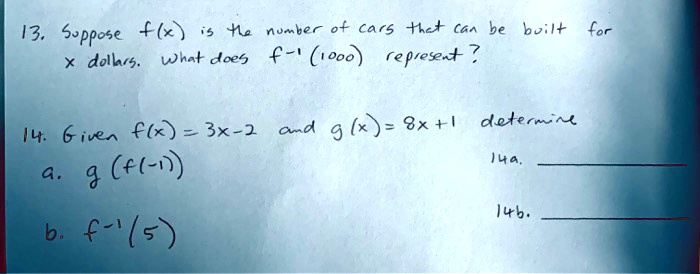 13. Suppose f(x) is the number of cars that can be built for
x dollars. What does f⁻¹(1000) represent?
14. Given f(x) = 3x-2 and g(x) = 8x+1 determine
a. g(f(-1))
14a.
b. f⁻¹(5)
14b.